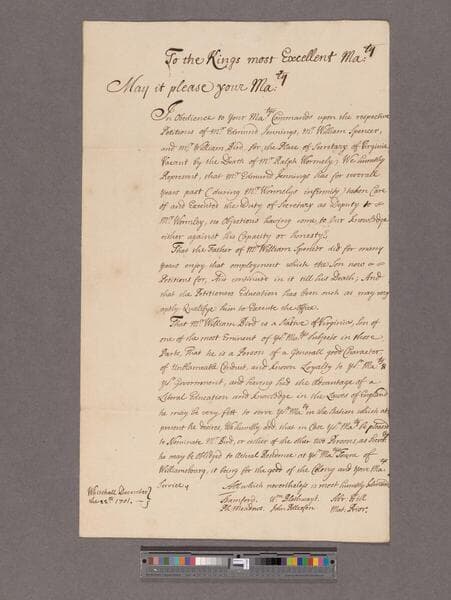 To the Kings most Excellent Ma:ty
May it please your Ma:ty
In Obedience to Your Ma:tys Commands upon the respective
Petitions of Mr. Edmund Jennings, Mr. William Spencer,
and Mr. William Bird, for the Place of Secretary of Virginia
Vacant by the Death of Mr. Ralph Wormely; We humbly
Represent, that Mr. Edmund Jennings has for severall
years past (during Mr. Wormelys infirmity) taken Care
of and Executed the Duty of Secretary as Deputy to
Mr. Wormley, no Objections having come to Our Knowledge
either against his Capacity or honesty.
That the Father of Mr. William Spencer did for many
years enjoy that employment which the Son now
Petitions for, And continued in it till his Death; And
that the Petitioners Education has been such as may very
aptly Qualifye him to Execute the Office.
That Mr. William Bird is a Native of Virginia, Son of
one of the most Eminent of Yr. Ma:tys Subjects in those
Parts, That he is a Person of a Generall good Character,
of Unblameable Conduct, and known Loyalty to Yr. Ma:ty &
Yr. Government, and having had the Advantage of a
Liberal Education and Knowledge in the Laws of England
he may be very fitt to serve Yr. Ma:ty in the Station which at
present he desires, We humbly add, that in Case Yr. Ma:ty be pleased
to Nominate Mr. Bird, or either of the other two Persons, as Secry.
he may be Oblidged to Actual Residence at Yr. Ma:tys Town of
Williamsburg, it being for the good of the Colony and Your Ma:tys
Service,
All which nevertheless is most humbly Submitted
Whitehall December
the 22th. 1701.
Stamford. Wm. Blathwayt. Abr. Hill
Ph. Meadows. John Pollexfen. Mat. Prior.